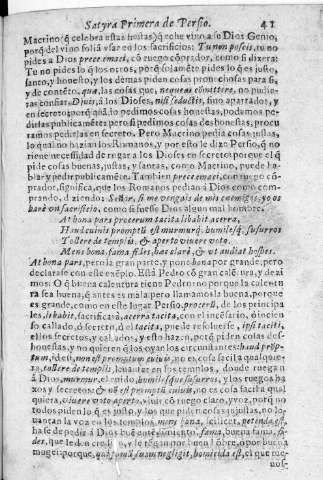 Satyra Primera de Persio. 41
Macrino (q̃ celebra estas fiestas) q̃ eche vino a se Dios Genio,
porq̃ del vino solia vsar en los sacrificios: Tu non poscis, tu no
pides a Dios prece emaci, cõ ruego cõprador, como si dixera:
Tu no pides lo q̃ los otros, porq̃ solamẽte pides lo q̃ es justo,
santo, y honesto, y los demas piden cosas prouechosas para si,
y de contẽto, quæ, las cosas que, nequeas cõmittere, no pudie-
ras confiar, Diuis, a los Dioses, nisi seductis, sino apartados, y
en secreto: porq̃ quãdo pedimos cosas honestas, podemos pe-
dirlas publicamẽte: pero si pedimos cosas deshonestas, procu
ramos pedirlas en secreto. Pero Macrino pedia cosas justas,
lo qual no hazian los Romanos, y por esto le dize Persio, q̃ no
tiene necessidad de rogar a los Dioses en secreto: porque el q̃
pide cosas buenas, justas, y santas, como Macrino, puede ha-
blar, y pedir publicamẽte. Tambien prece emaci, con ruego cõ-
prador, significa, que los Romanos pedian a Dios como com-
prando, diziendo: Señor, si me vengais de mis enemigos, yo os
harè vn sacrificio, como si fuesse Dios algun mal hombre.
At bona pars procerum tacita libabit acerra,
Haud cuiuis promptũ est murmurq̃; humilesq̃; susurros
Tollere de templis, & aperto viuere voto.
Mens bona, fama, fides, hæc clarè, & vt audiat hospes.
At bona pars, pero la gran parte, y pon bona por grande, pero
declarase con este exẽplo. Està Pedro cõ gran calẽtura, y dezi
mos: O q̃ buena calentura tiene Pedro: no porque la calentu-
ra sea buena, q̃ antes es mala: pero llamamosla buena, porque
es grande, como en este lugar Persio, procerũ, de los principa
les, libabit, sacrificarà, acerra tacita, con el incẽsario, ò incien
so callado, ò secreto,
ellos secretos, y callados, y
honestas, y no quieren q̃ los oyan los circunstantes:
ptum, id est, non est promptum cuiuis, no es cosa facil a qualquie-
ra, tollere de templis, leuantar en los templos, donde ruegan
à Dios, murmur, el ruido, humilesque susurros, y los ruegos ba
xos y secretos: & nõ est promptũ cuiuis, no es cosa facil a qual
quiera, viuere voto aperto, viuir cõ ruego claro, y voz, porq̃ no
todos piden lo q̃ es justo, y los que piden cosas injustas, no le-
uantan la voz en los templos,
hase de pedir à Dios buẽ entẽdimiento, fama, buena fama, fi-
des, que le den credito, y le tengan por buen hõbre, ò por buena
muger: porque, qui famã suam negligit, homicida est, el que rue-
nos-